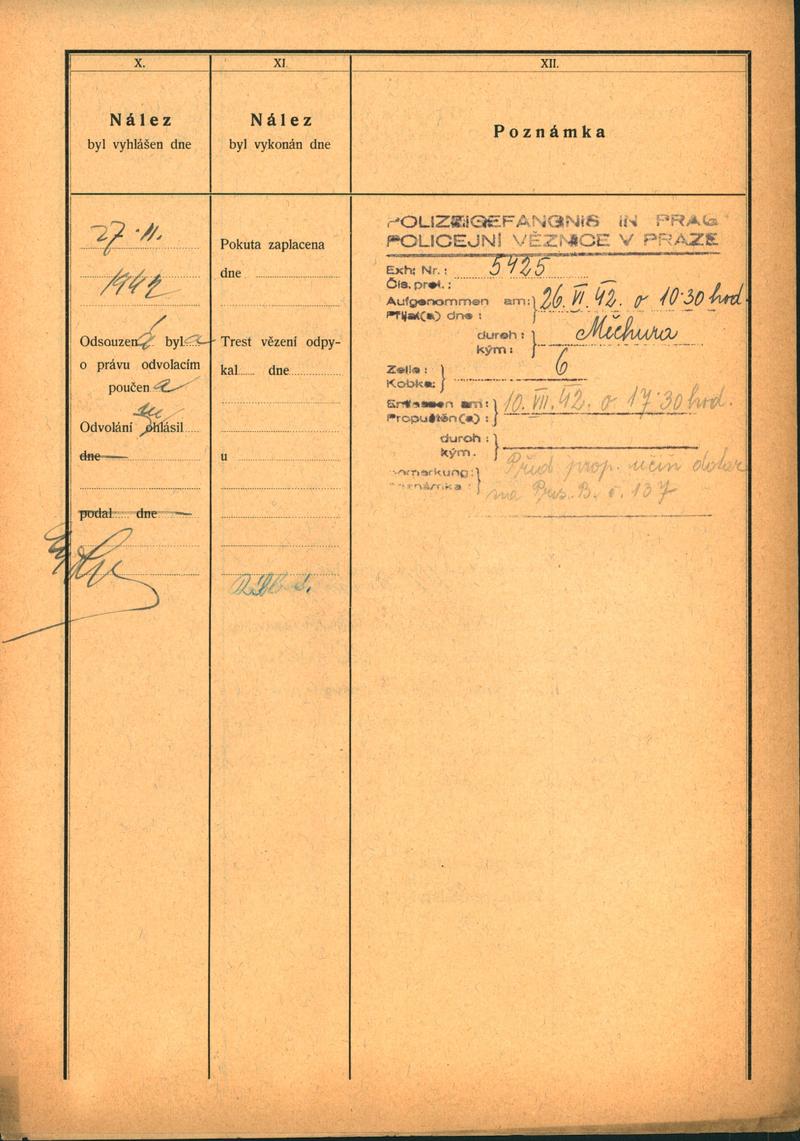 X.
Nález
byl vyhlášen dne
27. II.
1942
Odsouzená byla
o právu odvolacím
poučena
Odvolání ohlásil
dne
podal dne
XI.
Nález
byl vykonán dne
Pokuta zaplacena
dne
Trest vězení odpy-
kal dne
u
XII.
Poznámka
POLIZEIGEFÄNGNIS IN PRAG
POLICEJNÍ VĚZNICE V PRAZE
Exh: Nr.: 5425
Čis. prot.:
Aufgenommen am: 26. VI. 42. o 10·30 hod.
Přijat(a) dne:
durch: Měchura
kým:
Zelle: 6
Kobka:
Entlassen am: 10. VII. 42. o 17·30 hod.
Propuštěn(a):
durch:
kým.
Bemerkung: Před prop. učin dotaz
Poznámka: na B. č. 137